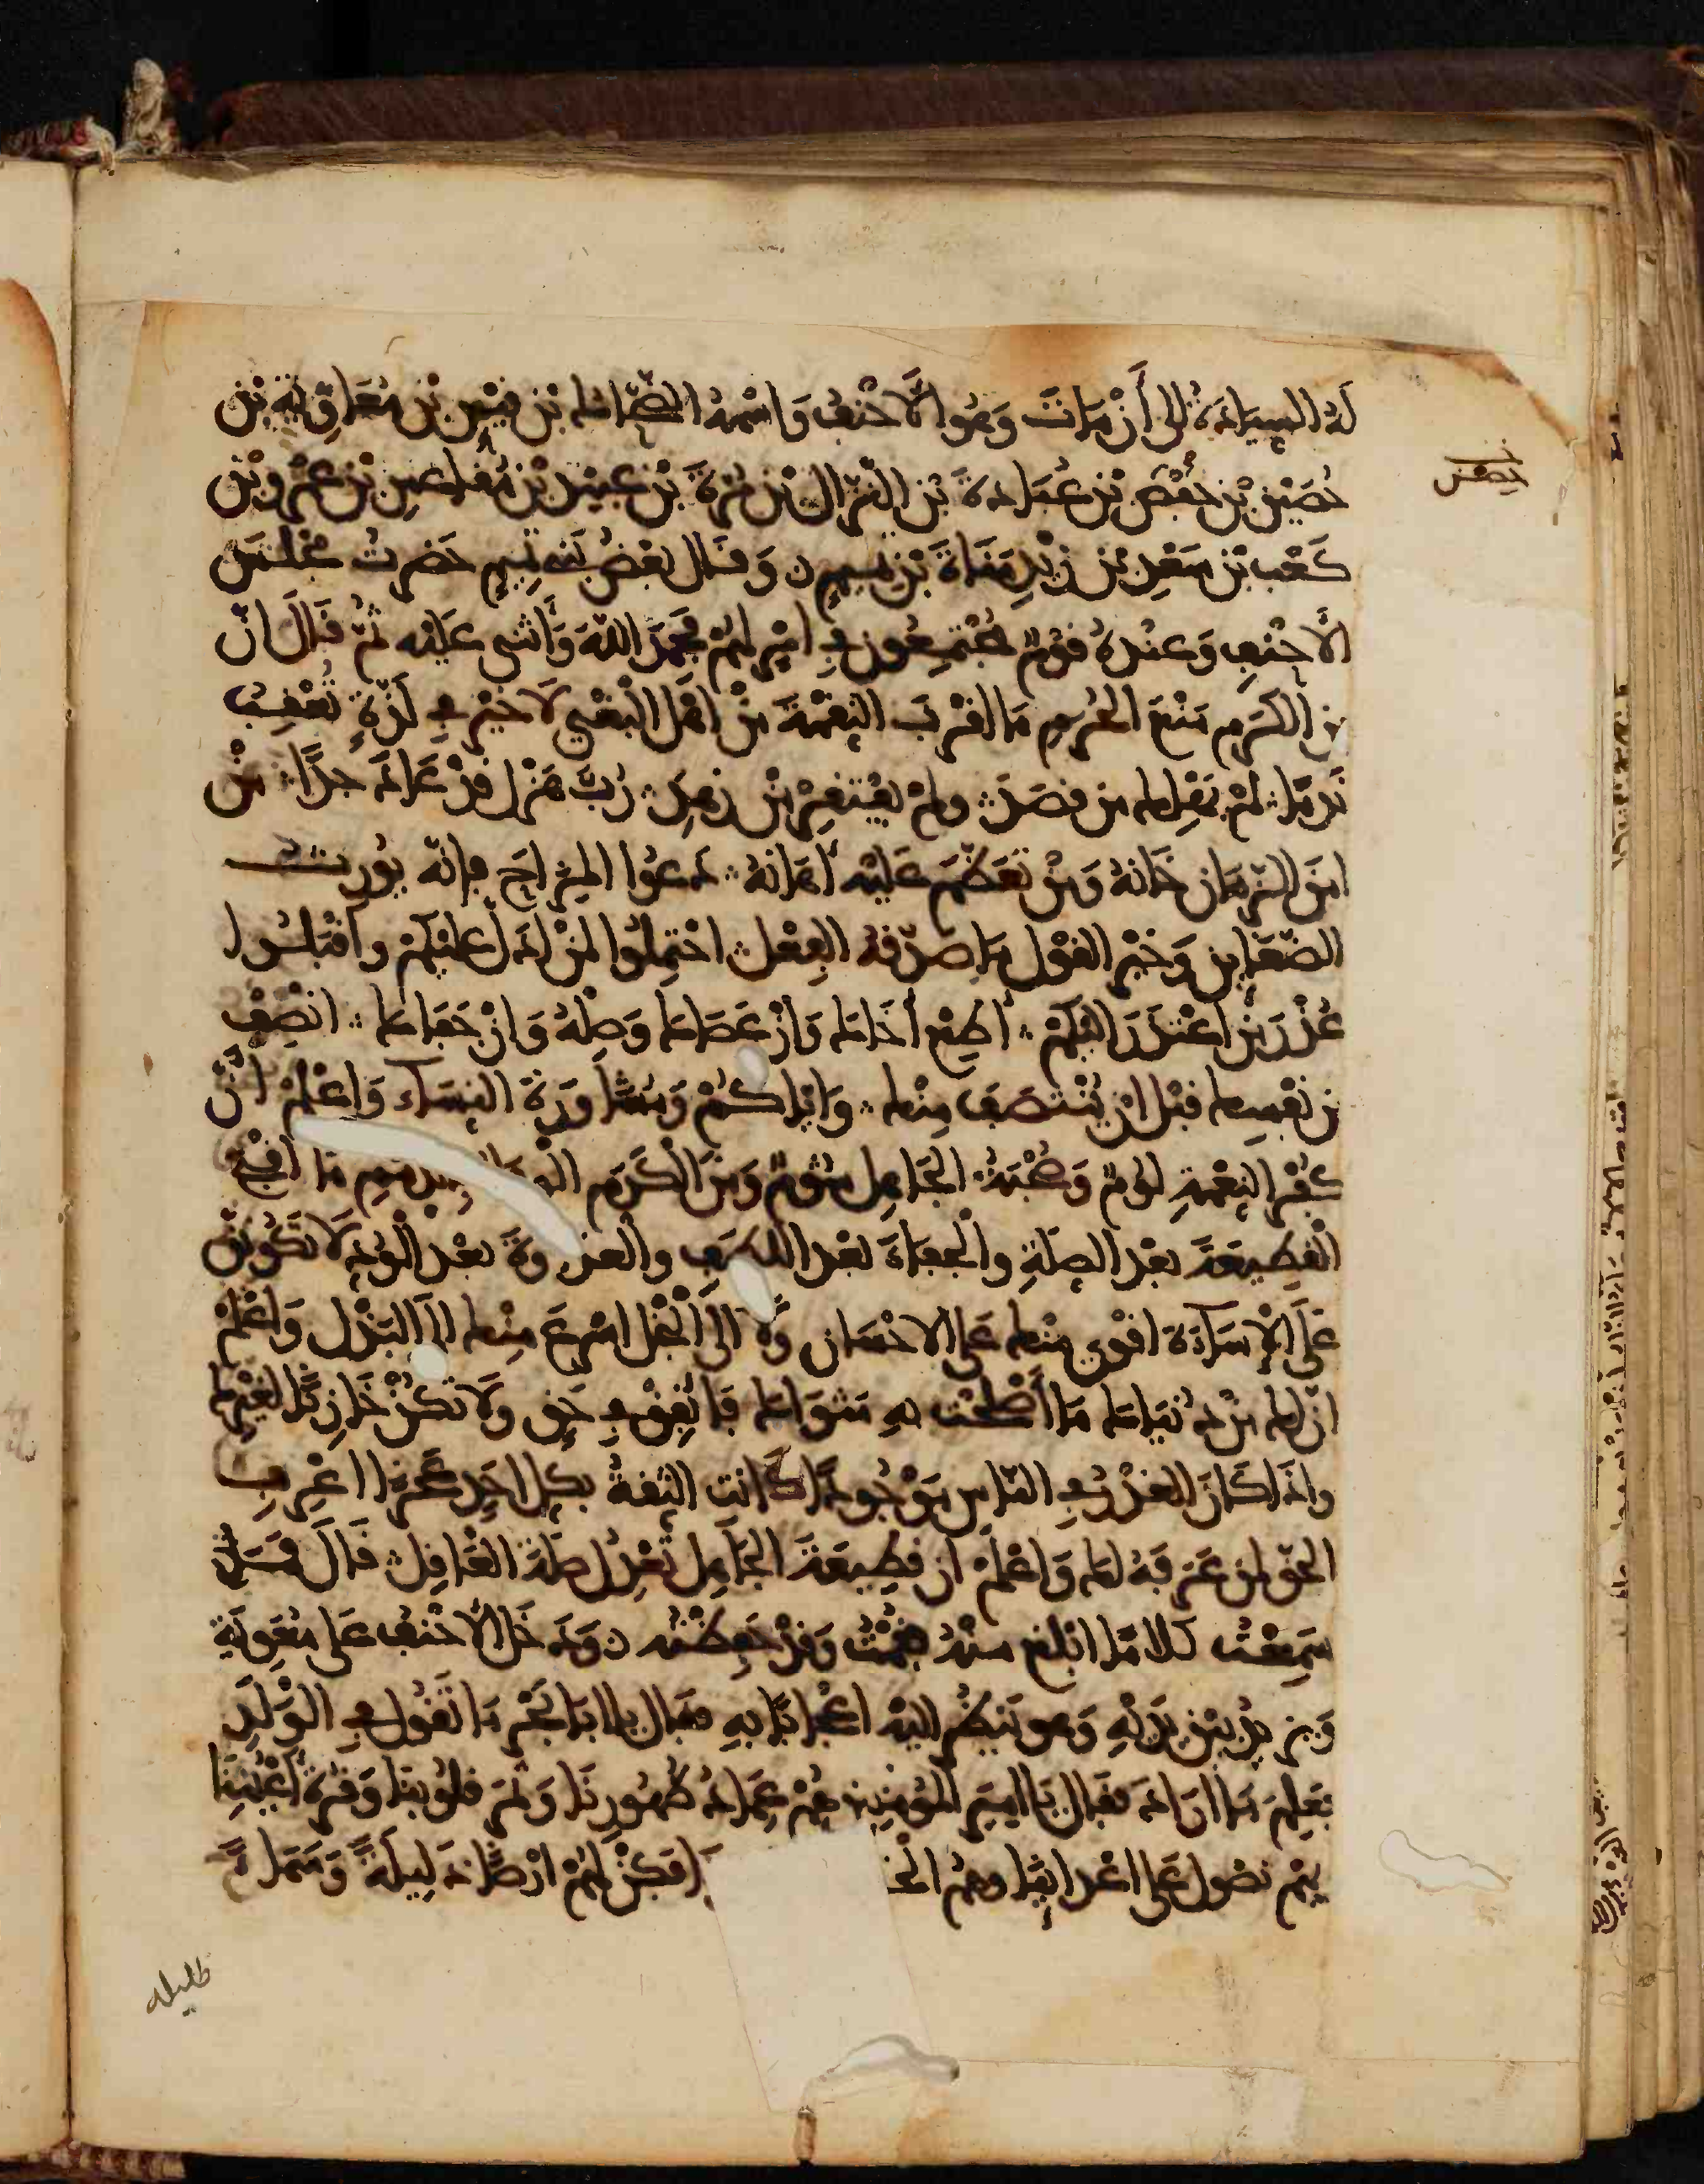 له السيادة الى أن مات وهو الأحنف واسمه الضحاك بن قيس بن معاوية بن
حصين بن حفص بن عبادة بن النزال بن مرة بن عبيد بن مقاعس بن عمرو بن
كعب بن سعد بن زيد مناة بن تميم وقال بعض بني تميم حضرت مجلس
الأحنف وعنده قوم مجتمعون في امر لهم فحمد الله وأثنى عليه ثم قال ان
من الكرم منع الحرم ما اقرب النقمة من اهل البغي لا خير في لذة تعقب
ندما لم يهلك من قصد ولم يفتقر من زهد رب هزل قد عاد جدا من
امن الزمان خانه ومن تعظم عليه أهانه دعوا المزاح فإنه يورث
الضغاين وخير القول ما صدقه الفعل احتملوا لمن ادل عليكم واقبلوا
عذر من اعتذر اليكم أطع أخاك وان عصاك وصله وان جفاك انصف
من نفسك قبل ان ينتصف منك واياكم ومشاورة النساء واعلم ان
كفر النعمة لوم وصحبة الجاهل شوم ومن الكرم الذمم ما اقبح
القطيعة بعد الصلة والجفاء بعد اللطف والعداوة بعد الود لا تكونن
على الإساءة اقوى منك على الاحسان ولا الى البخل اسرع منك الى البذل واعلم
ان لك من دنياك ما أصلحت به مثواك فانفق في حق ولا تكن خازنا لغيرك
واذا كان الغدر في الناس موجودا كانت الثقة بكل احد عجزا اعرف
الحق لمن عرفه لك واعلم ان قطيعة الجاهل تعدل صلة العاقل قال فما
سمعت كلاما ابلغ منه فقمت وقد حفظته ودخل الأحنف على معوية
ويزيد بين يديه وهو ينظر اليه اعجابا به فقال يا ابا بحر ما تقول في الولد
فعلم ما اراد فقال يا امير المومنين هم عماد ظهورنا وثمر قلوبنا وقرة أعيننا
بهم نصول على اعداينا وهم الخ فكن لهم ارضا ذليلة وسماء
ظليلة
حفص